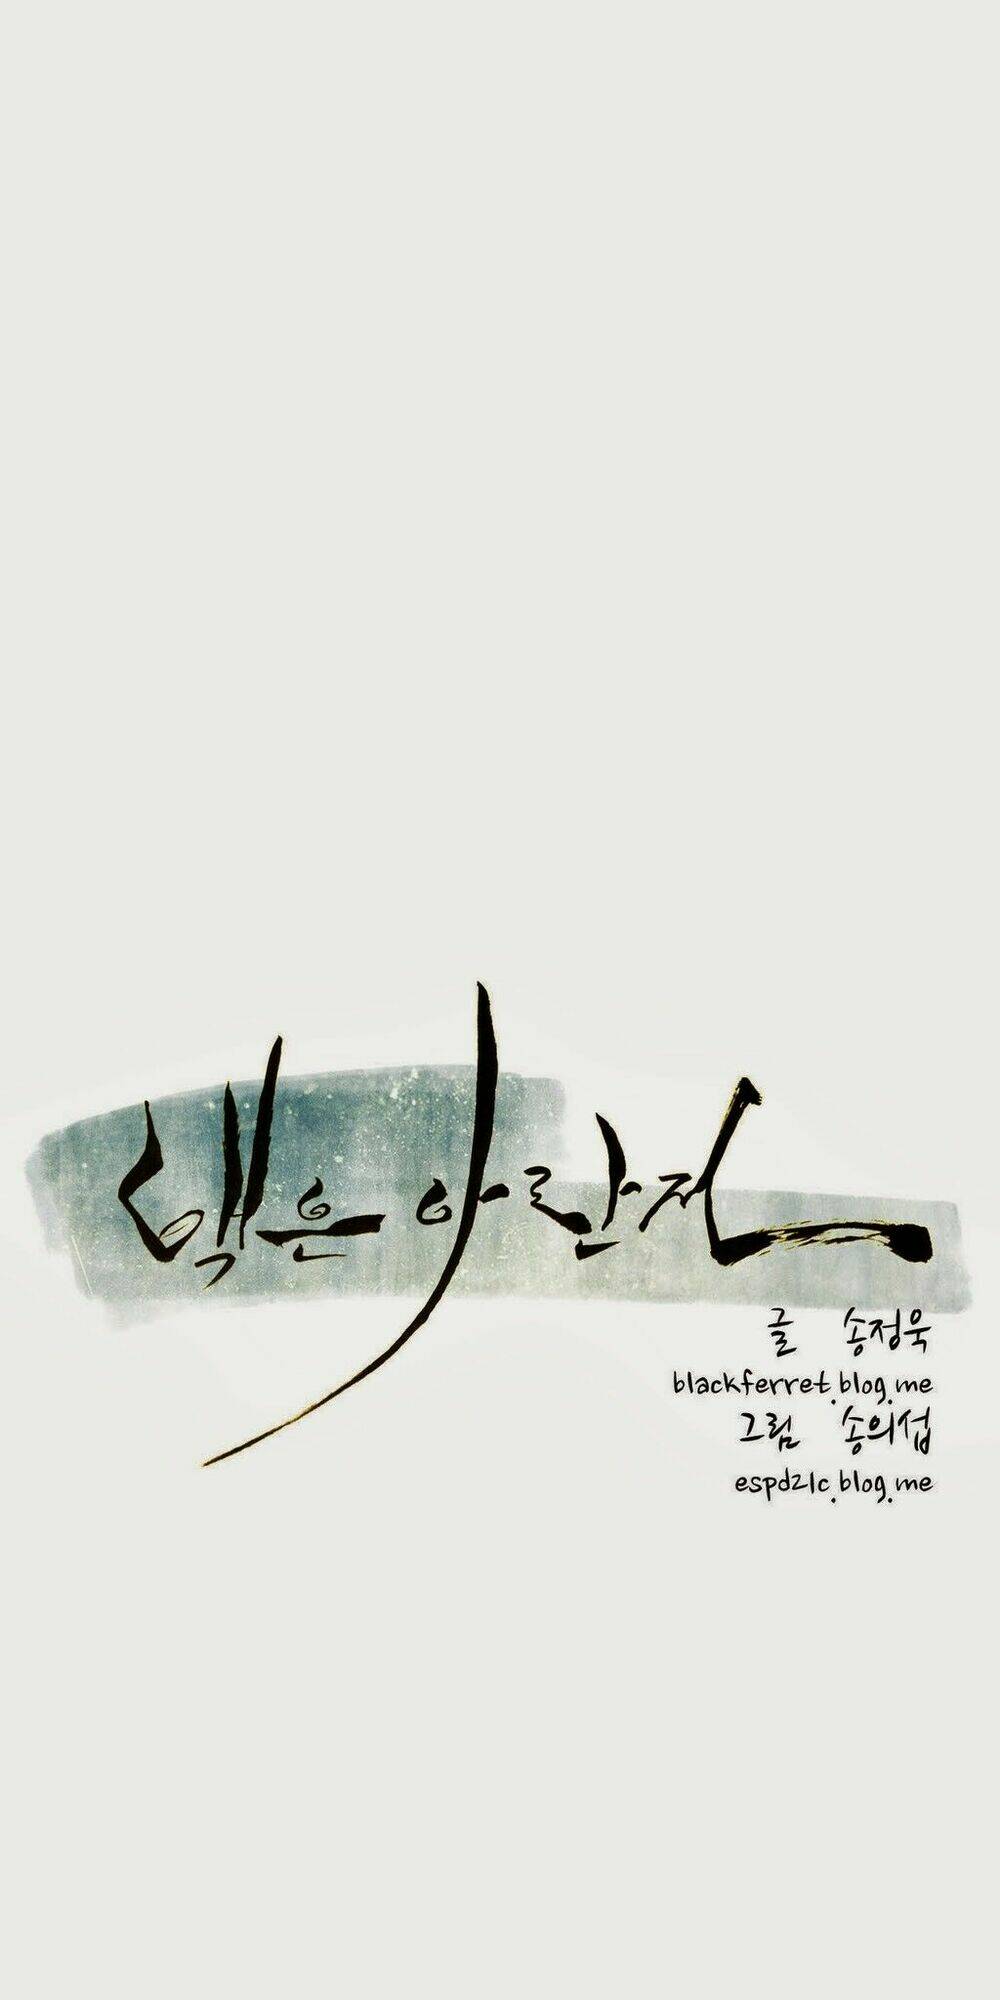 넋은 아란전
글 송정욱
blackferret.blog.me
그림 송의섭
espd21c.blog.me